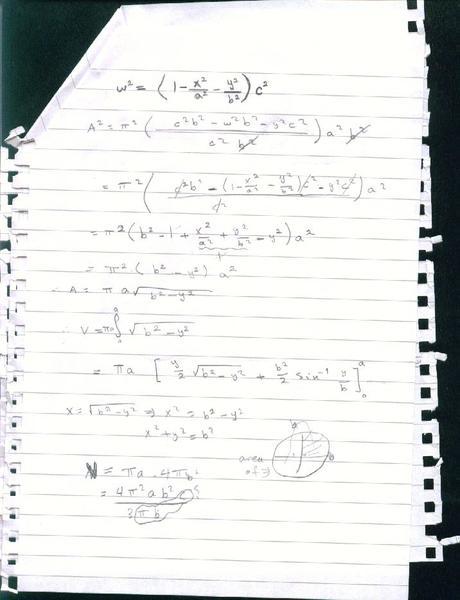 w² = (1 - x²/a² - y²/b²) c²
A² = π² ( (c²b² - w²b² - y²c²) / (c² b²) ) a² b²
= π² ( (c²b² - (1 - x²/a² - y²/b²) c² - y²c²) / c² ) a²
= π² (b² - 1 + x²/a² + y²/b² - y²) a²
1
= π² (b² - y²) a²
∴ A = π a √(b² - y²)
∴ V = πa ∫ √(b² - y²)
= πa [ y/2 √(b² - y²) + b²/2 sin⁻¹ y/b ]
x = √(b² - y²) ⇒ x² = b² - y²
x² + y² = b²
area of
= πa · 4πb²
= 4π²ab²
3πb